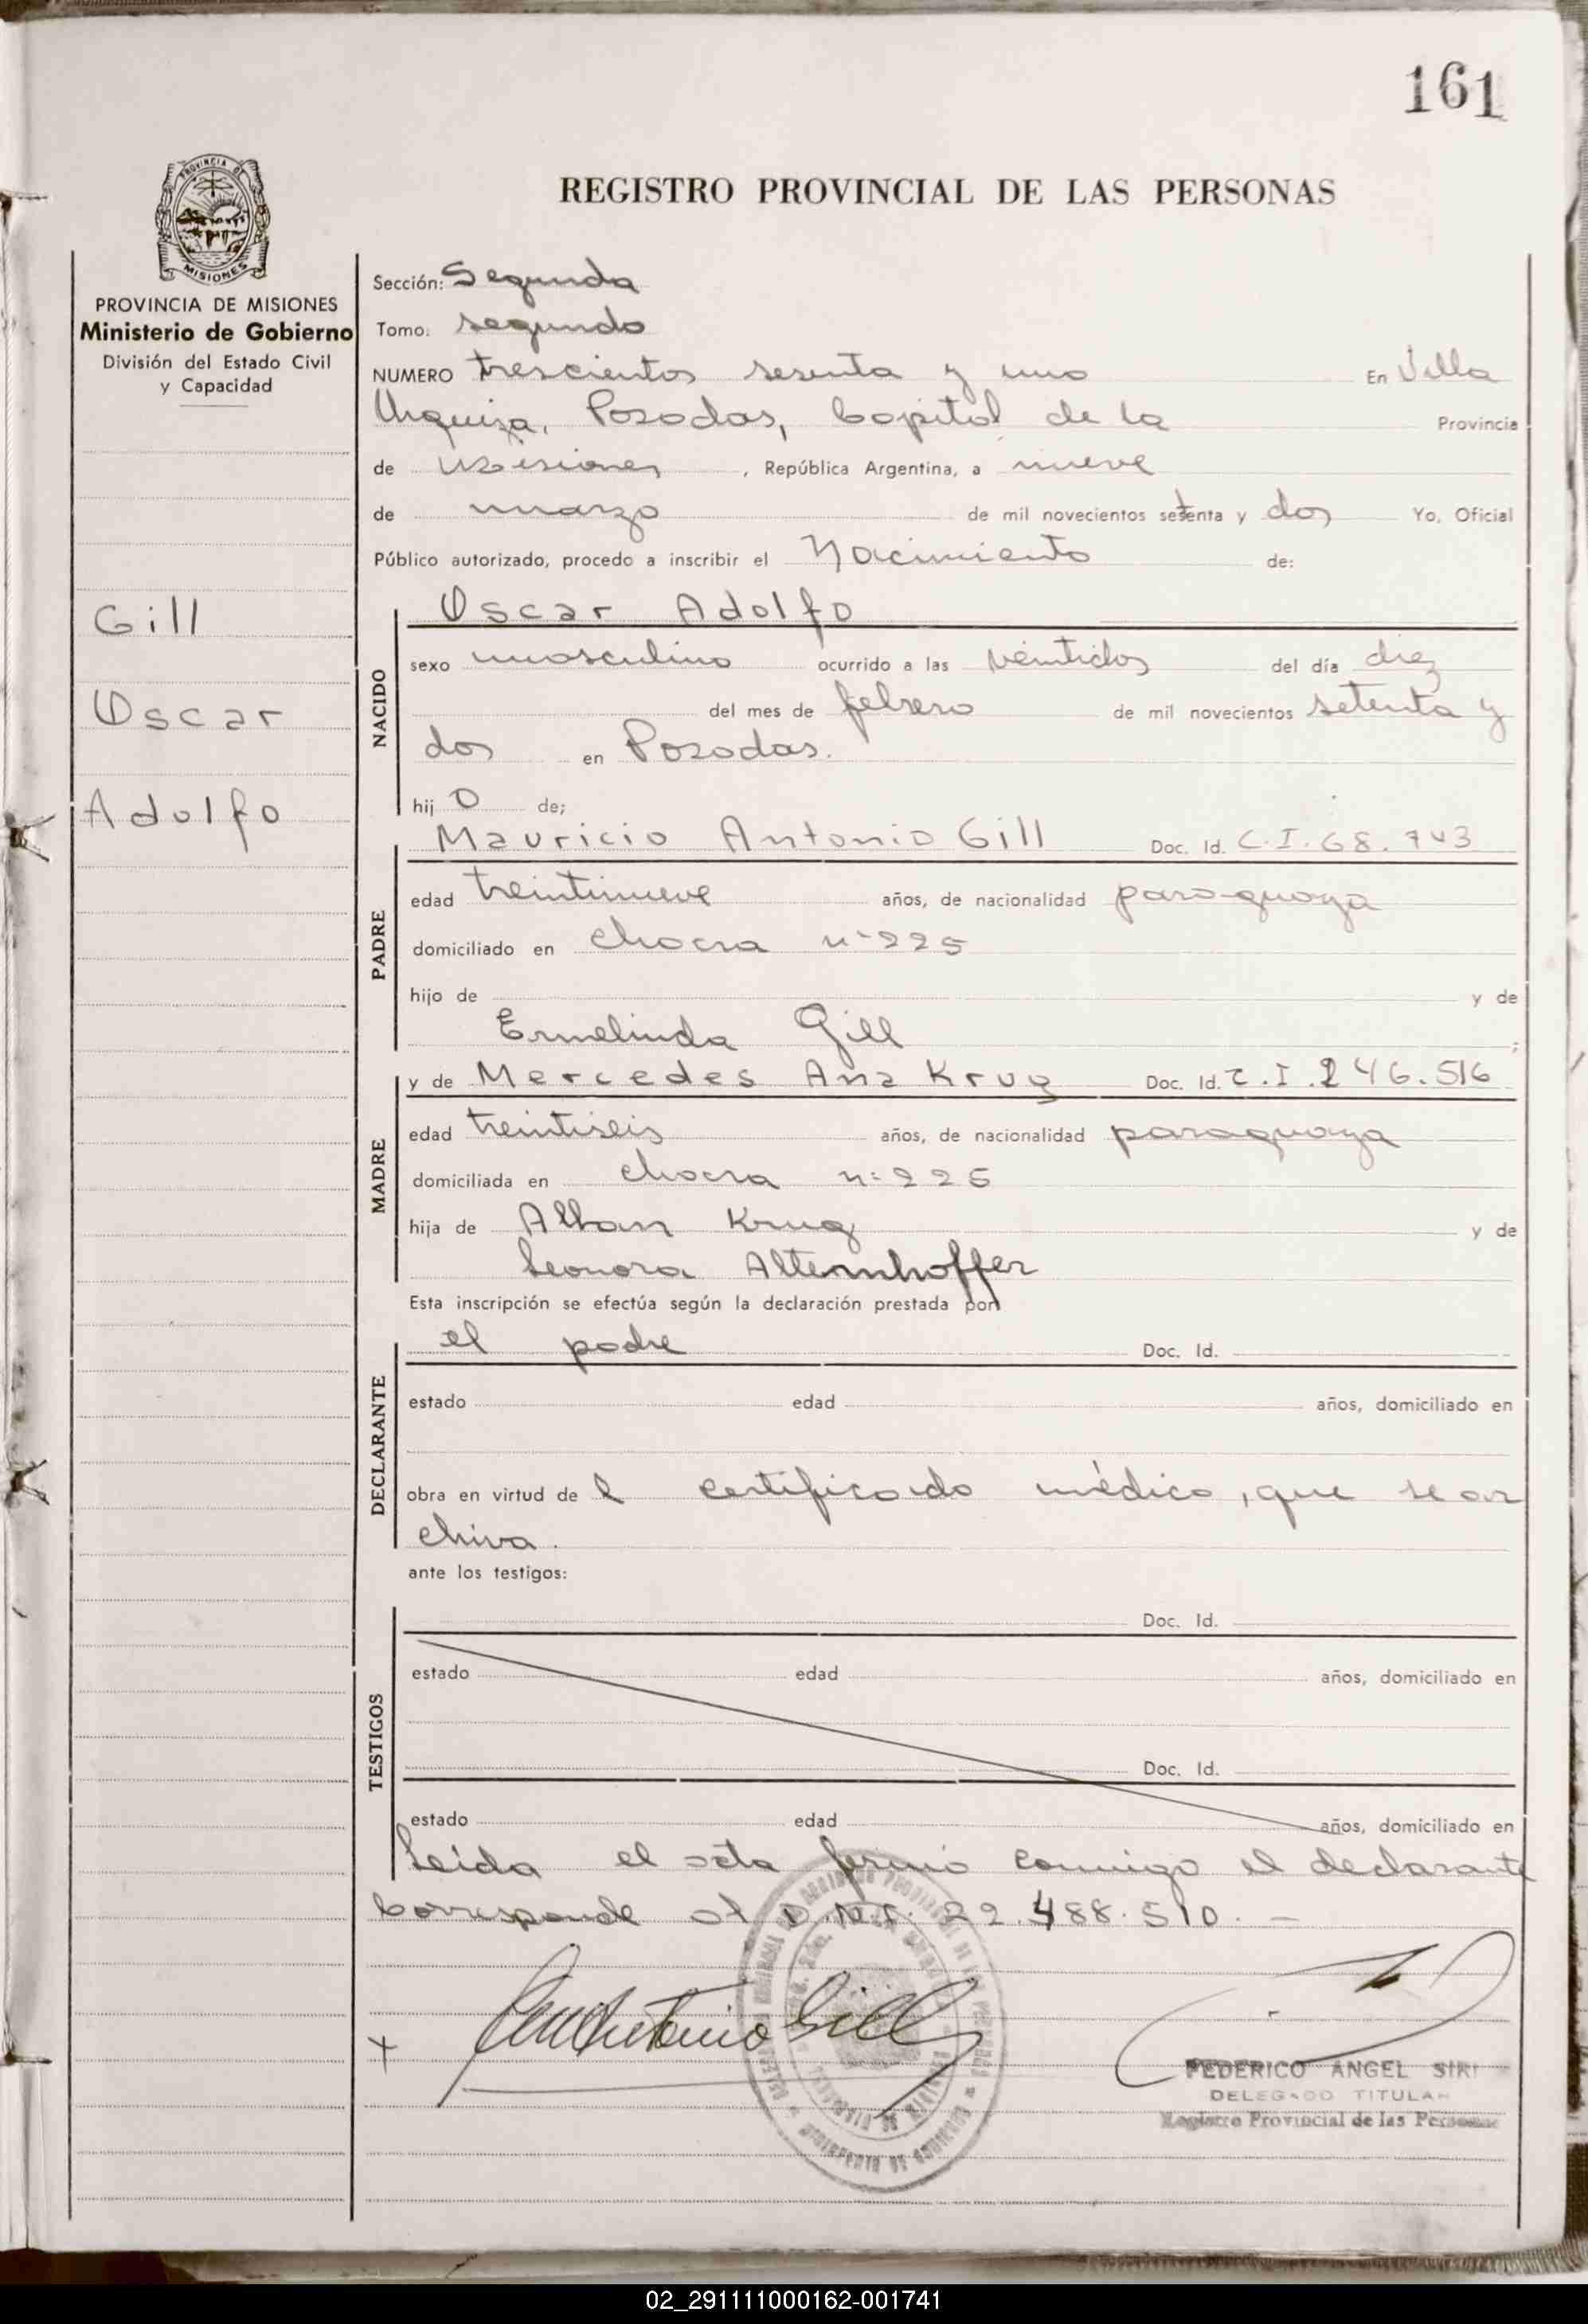 161
PROVINCIA DE MISIONES
REGISTRO PROVINCIAL DE LAS PERSONAS
PROVINCIA DE MISIONES
Ministerio de Gobierno
División del Estado Civil
y Capacidad
Gill
Oscar
Adolfo
Sección: Segunda
Tomo: segundo
NUMERO trescientos sesenta y uno En Villa
Urquiza, Posadas, Capital de la Provincia
de Misiones, República Argentina, a nueve
de marzo de mil novecientos setenta y dos Yo, Oficial
Público autorizado, procedo a inscribir el Nacimiento de:
NACIDO
Oscar Adolfo
sexo masculino ocurrido a las veintidos del día diez
del mes de febrero de mil novecientos setenta y
dos en Posadas.
hijo de;
PADRE
Mauricio Antonio Gill Doc. Id. C.I. 68.743
edad treintinueve años, de nacionalidad paraguaya
domiciliado en chacra nº 225
hijo de y de
Ermelinda Gill ;
MADRE
y de Mercedes Ana Krug Doc. Id. C.I. 246.516
edad treintiseis años, de nacionalidad paraguaya
domiciliada en chacra nº 225
hija de Alban Krug y de
Leonora Alternhoffer
Esta inscripción se efectúa según la declaración prestada por
DECLARANTE
el padre Doc. Id.
estado edad años, domiciliado en
obra en virtud de l certificado médico, que se ar
chiva.
ante los testigos:
TESTIGOS
Doc. Id.
estado edad años, domiciliado en
Doc. Id.
estado edad años, domiciliado en
Leida el acta firmó conmigo el declarante
Corresponde al D.N.I. 22.488.510. -
Antonio Gill
FEDERICO ANGEL SIRI
DELEGADO TITULAR
Registro Provincial de las Personas
02_291111000162-001741